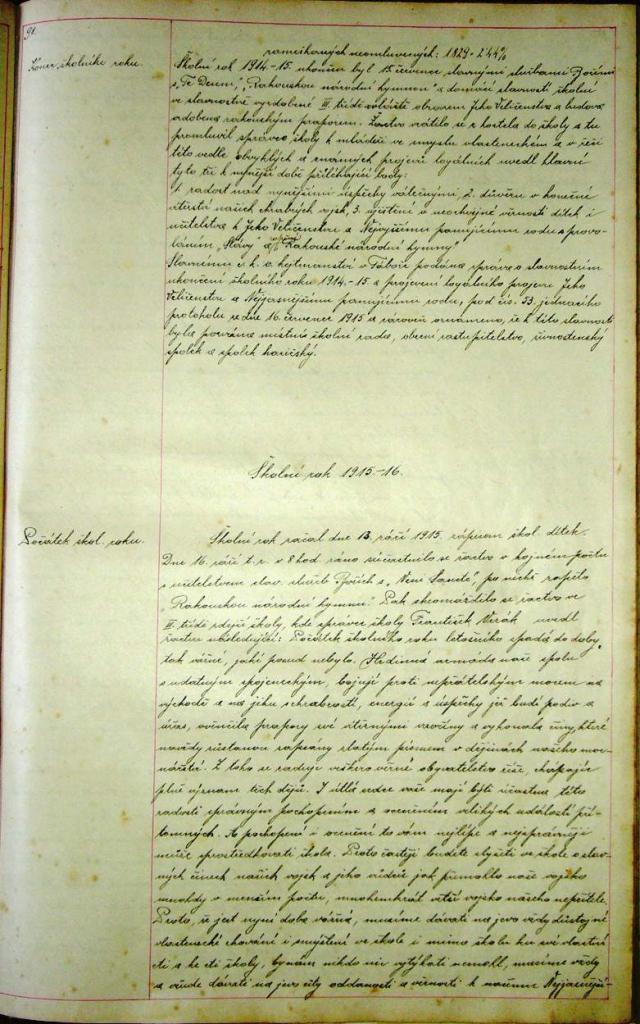 91.
Konec školního roku.
zameškaných neomluvených: 1829 - 2·44%
Školní rok 1914.-15. ukončen byl 15. července slavnými službami Božími
s „Te Deum", „Rakouskou národní hymnou" a domácí slavností školní
ve slavnostně vyzdobené III. třídě zvláště obrazem Jeho Veličenstva a budova
ozdobena rakouským praporem. Žactvo vrátilo se z kostela do školy a tu
promluvil správce školy k mládeži ve smyslu vlasteneckém a v řeči
této vedle obvyklých a známých projevů loyálních uvedl hlavní
tyto tři k nynější době přiléhající body:
1. radost nad nynějšími úspěchy válečnými, 2. důvěru v konečné
vítězství našich chrabrých vojsk, 3. ujištění o neochvějné věrnosti dítek i
učitelstva k Jeho Veličenstvu a Nejvyššímu panujícímu rodu a provo-
láním „Slávy" a Rakouské národní hymny"
Slavnému c. k. o. hejtmanství v Táboře podána zpráva o slavnostním
ukončení školního roku 1914.-15 a projevení loyálního projevu Jeho
Veličenstvu a Nejjasnějšímu panujícímu rodu, pod čís. 53. jednacího
protokolu ze dne 16. červenec 1915 a zároveň oznámeno, že k této slavnosti
byla pozvána místní školní rada, obecní zastupitelstvo, živnostenský
spolek a spolek hasičský.
Školní rok 1915.-16.
Počátek škol. roku.
Školní rok začal dne 13. září 1915. zápisem škol. dítek.
Dne 16. září t. r. v 8 hod. ráno súčastnilo se žactvo v hojném počtu
s učitelstvem slav. služeb Božích s „Veni Sancte", po nichž zapělo
„Rakouskou národní hymnu". Pak shromáždilo se žactvo ve
III. třídě zdejší školy, kde správce školy František Verák uvedl
žactvu následující: Počátek školního roku letošního spadá do doby
tak vážné, jaké posud nebylo. Hrdinná armáda naše spolu
s udatným spojeneckým, bojují proti nepřátelským mocem na
východě a na jihu s chrabrostí, energií a úspěchy jež budí podiv a
úžas, ovinula prapory své vítěznými vavříny a vykonala činy, které
navždy zůstanou zapsány zlatým písmem v dějinách našeho moc-
nářství. Z toho se raduje veškero věrné obyvatelstvo říše, chápajíc
plně význam těch dějů. I útlá srdce vaše mají býti účastna této
radosti správným pochopením a oceněním velikých událostí pří-
tomných. A pochopení i ocenění to vám nejlépe a nejsprávněji
může zprostředkovati škola. Proto častěji budete slyšeti ve škole o slav-
ných činech našich vojsk a jeho vůdců jak přemohlo naše vojsko
mnohdy v menším počtu, mnohemkrát větší vojsko našeho nepřítele.
Proto, že jest nyní doba vážná, musíme dávati na jevo vždy důstojné
vlastenecké chování i smýšlení ve škole i mimo školu ku své vlastní
cti a ke cti školy, by nám nikdo nic vytýkati nemohl, musíme vždy
a všude dávati na jevo city oddanosti a věrnosti k našemu Nejjasnější-